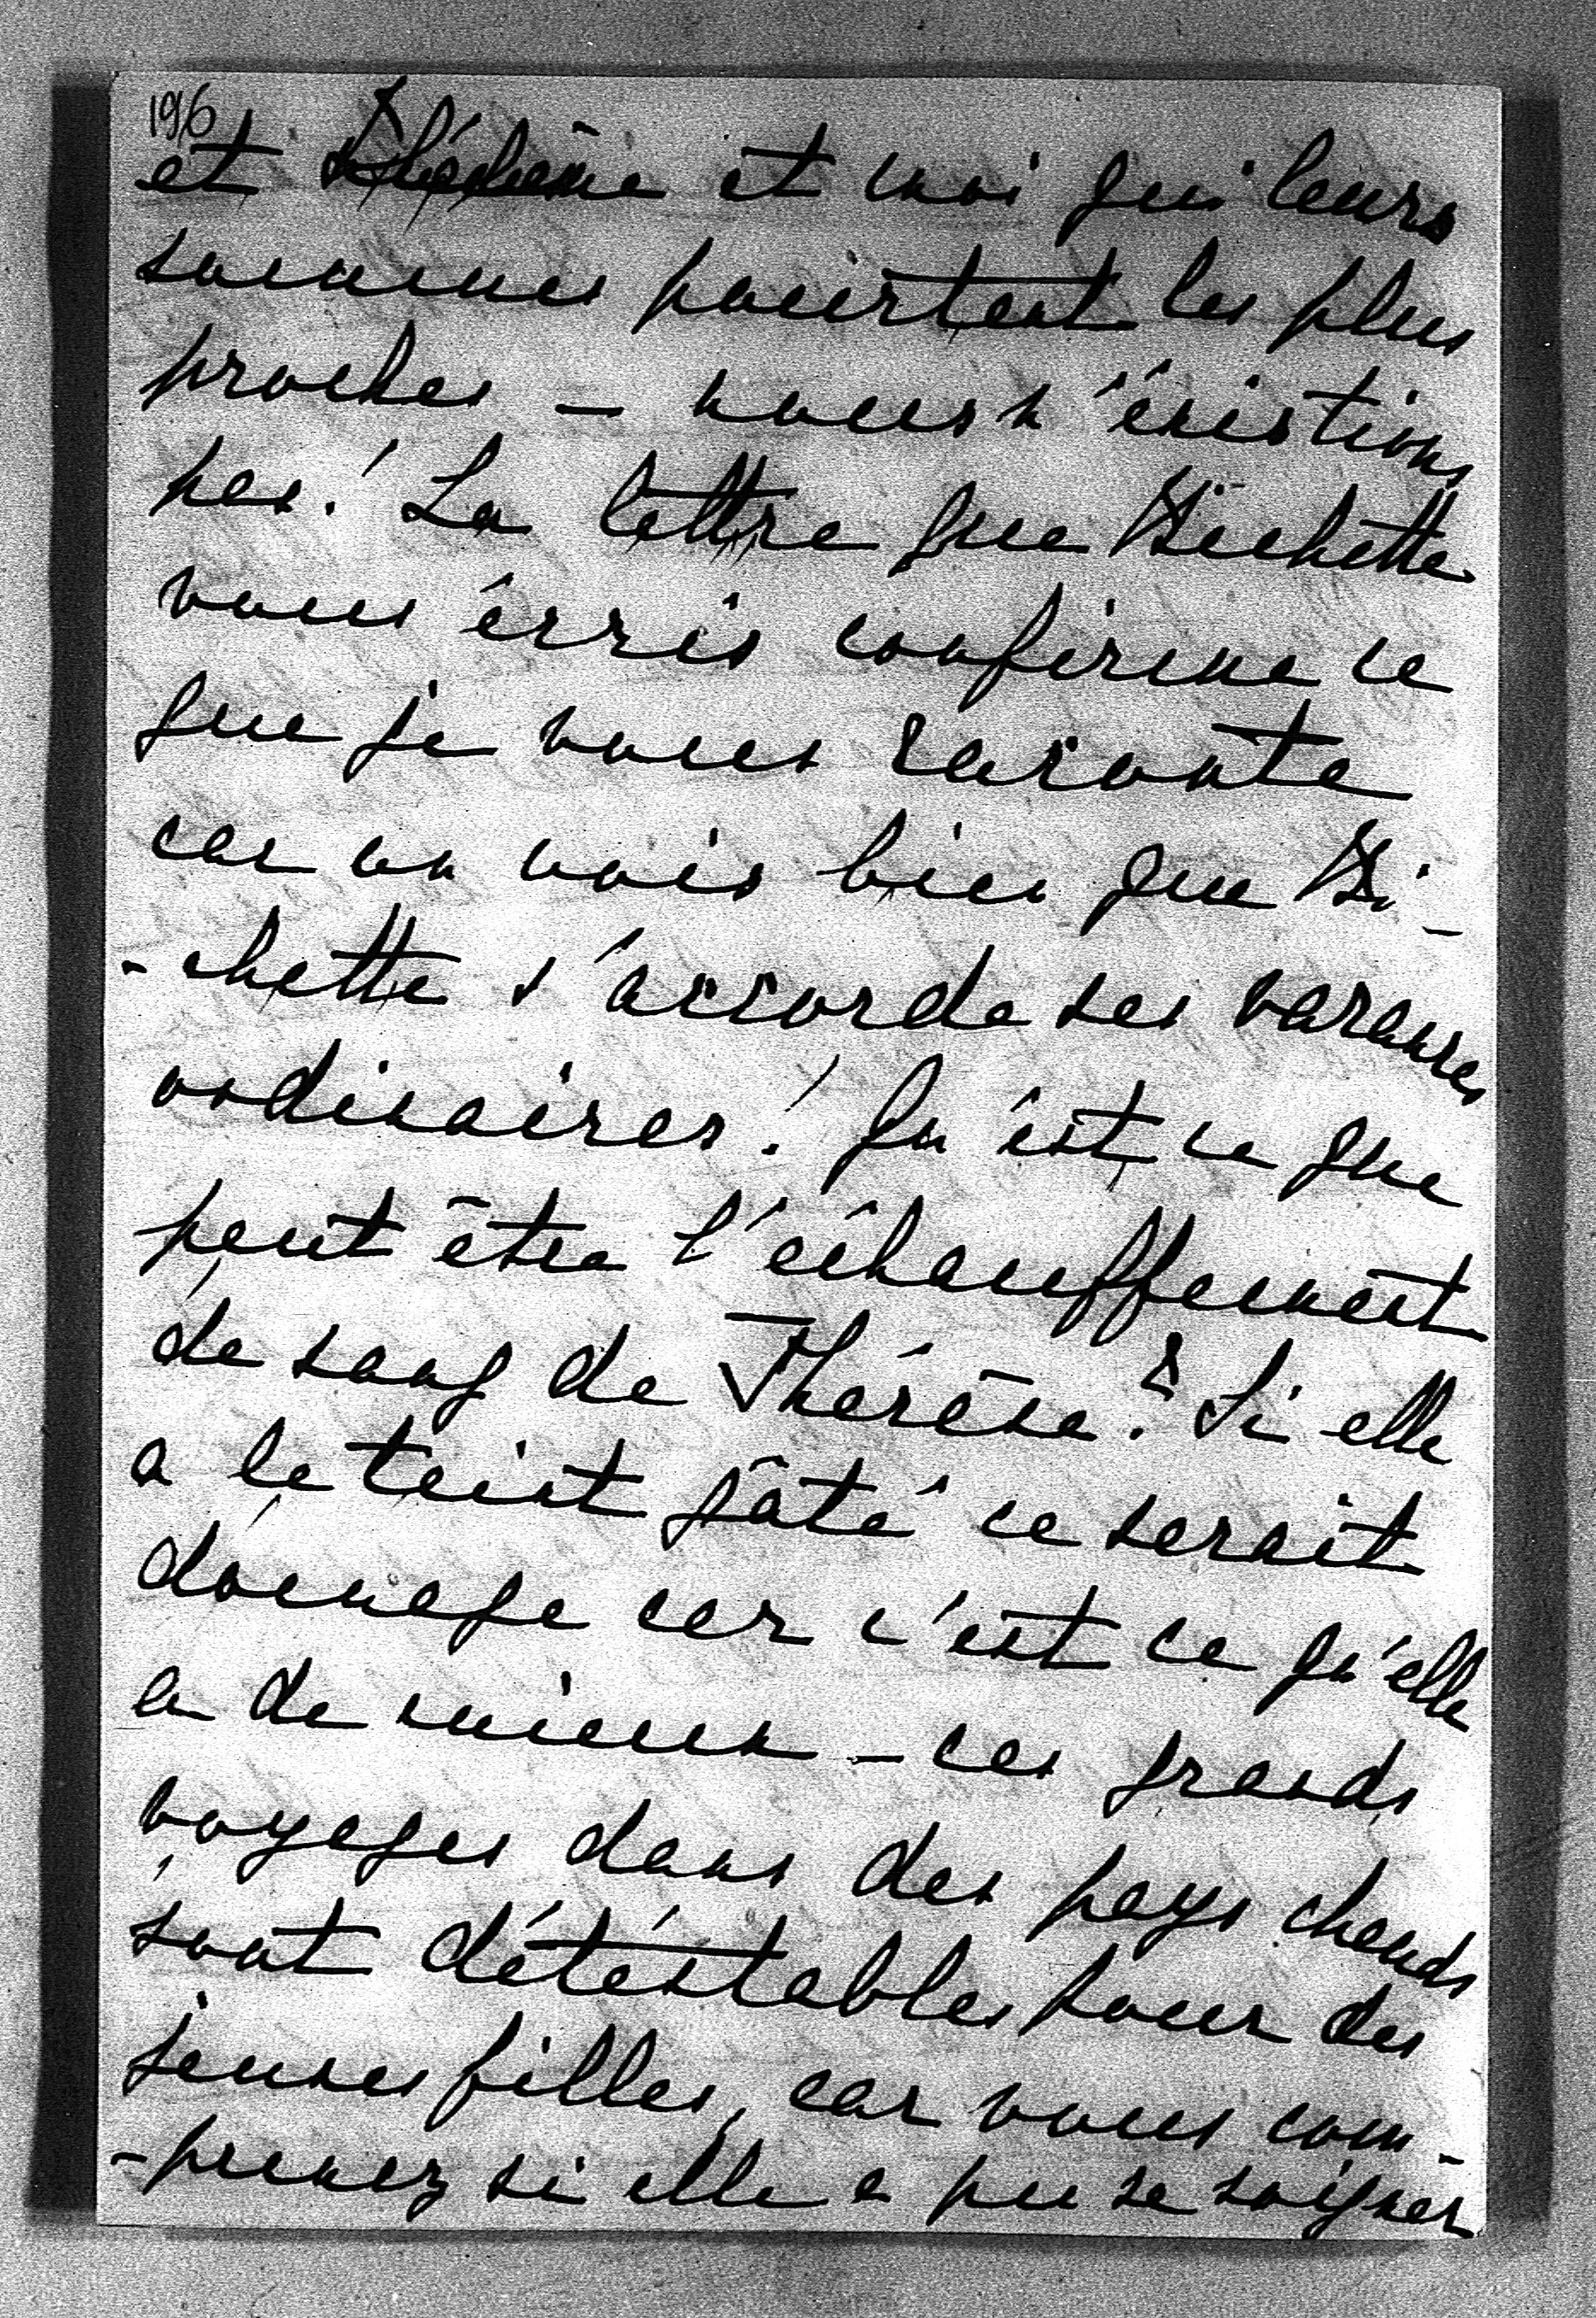 196
et et moi qui leurs
sommes pourtant les plus
proches – nous n'éxistions
pas! La lettre que Michette
vous écris confirme ce
que je vous raconte
car on vois bien que Mi-
-chette s'accorde ses vacances
ordinaires! Qu'est ce que
peut être l'échauffement
de sang de Thérèse? Si elle
a le teint gâté ce serait
domage car c'est ce qu'elle
a de mieux – ces grands
voyages dans des pays chauds
sont détéstables pour des
jeunes filles, car vous com-
-prenez si elle a pu se soigner